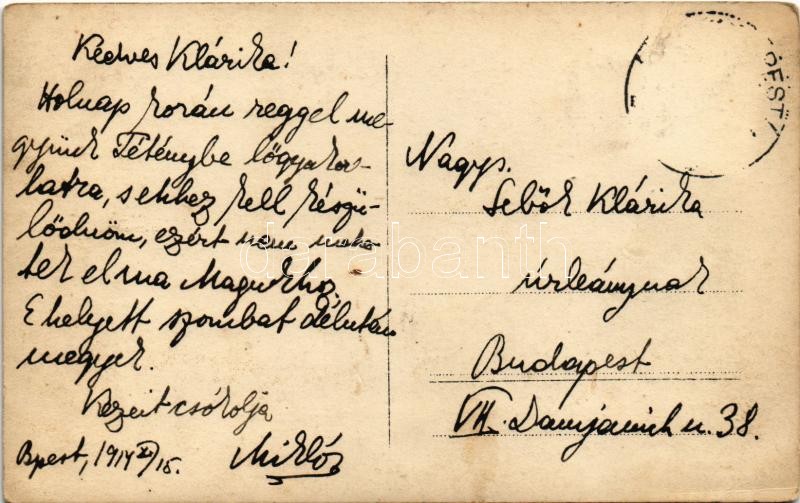 Kedves Klárika!
Holnap korán reggel me-
gyünk Téténybe lőgyakor-
latra, s ehhez kell készü-
lődnöm, ezért nem mehe-
tek el ma Magukho.
E helyett szombat délután
megyek.
Kezeit csókolja
Miklós
Bpest, 1914 XI/15.
Nagys.
Sebők Klárika
úrleánynak
Budapest
VII. Damjanich u. 38.
darabanth